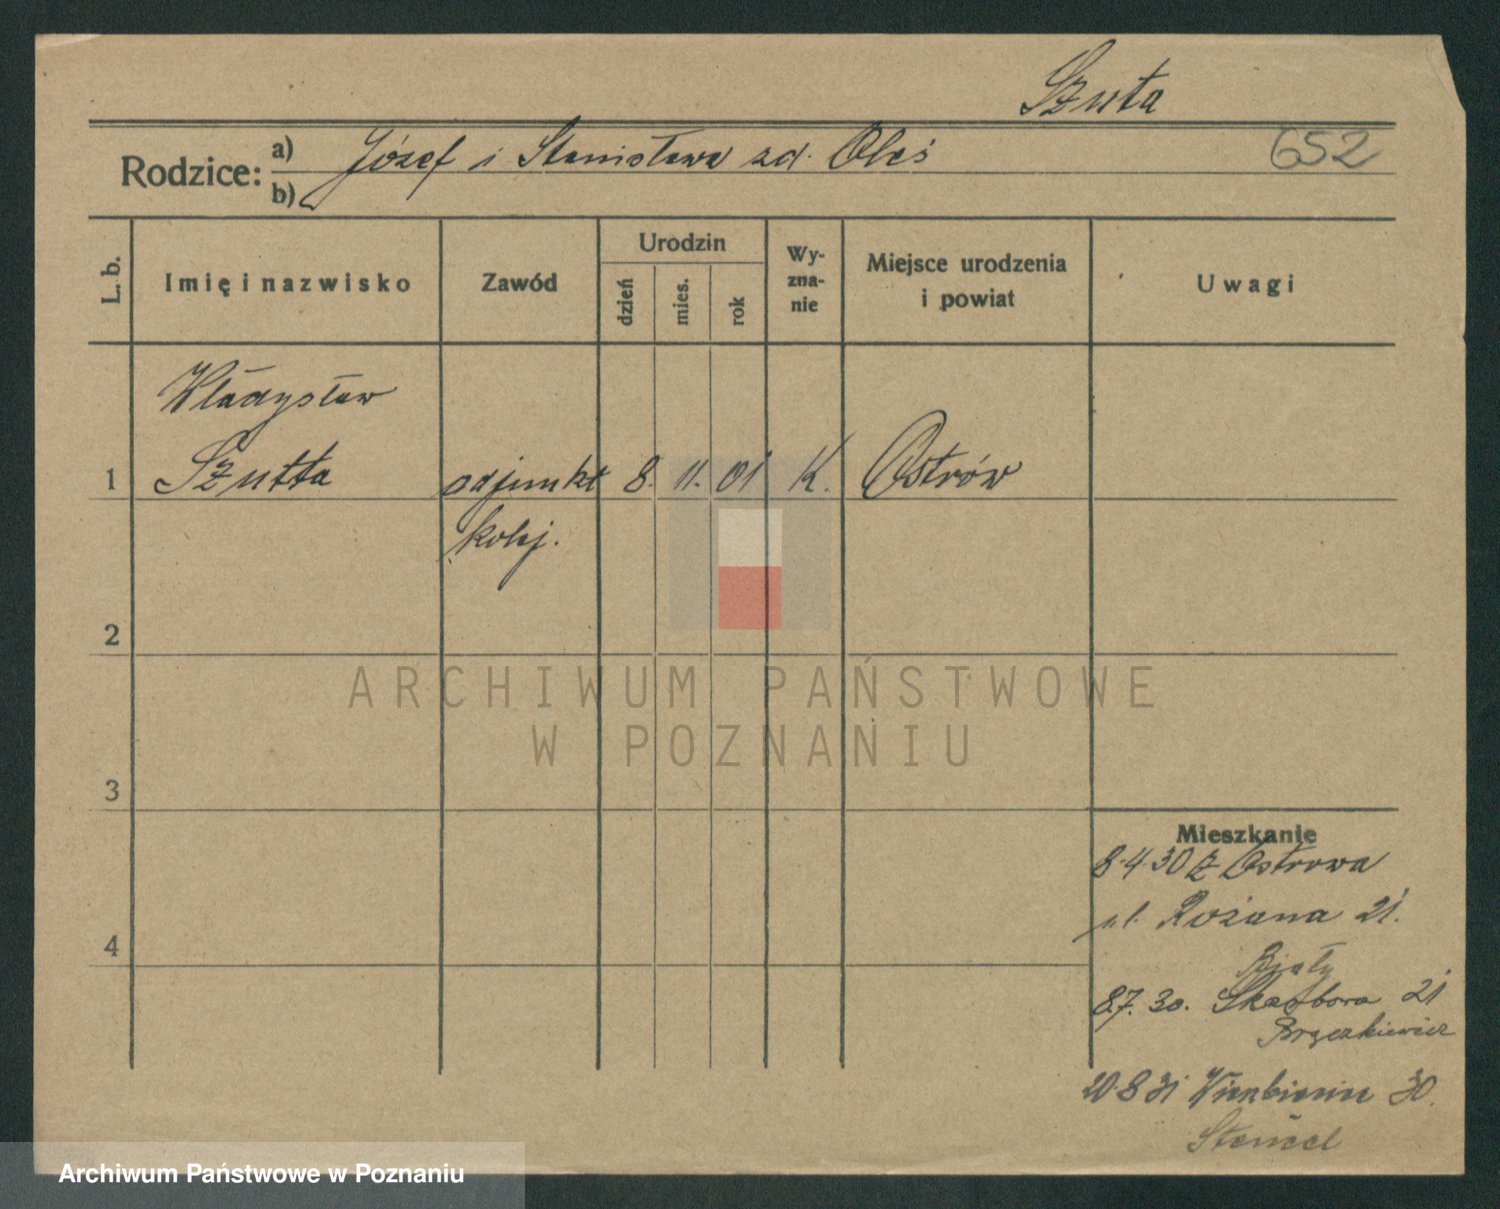 Szuta
Rodzice: a) Józef i Stanisława zd. Oleś 652
b)
L. b. Imię i nazwisko Zawód Urodzin dzień mies. rok Wy-zna-nie Miejsce urodzenia i powiat Uwagi
Władysław
1 Szutta adjunkt 8. 11. 01 K. Ostrów
kolej.
2
ARCHIWUM PAŃSTWOWE
W POZNANIU
3
Mieszkanie
8.4.30 z Ostrowa
ul. Różana 21.
4
Biały
8.7.30. Skarbora 21
20.8.31 30.
Stencel
Archiwum Państwowe w Poznaniu